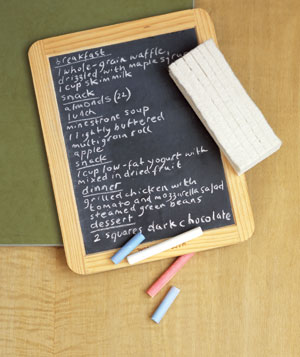 breakfast
1 whole-grain waffle
drizzled with maple syrup
1 cup skim milk
snack
almonds (22)
lunch
minestrone soup
1 lightly buttered
multigrain roll
apple
snack
1 cup low-fat yogurt with
mixed in dried fruit
dinner
grilled chicken with
tomato and mozzarella salad
steamed green beans
dessert
2 squares dark chocolate